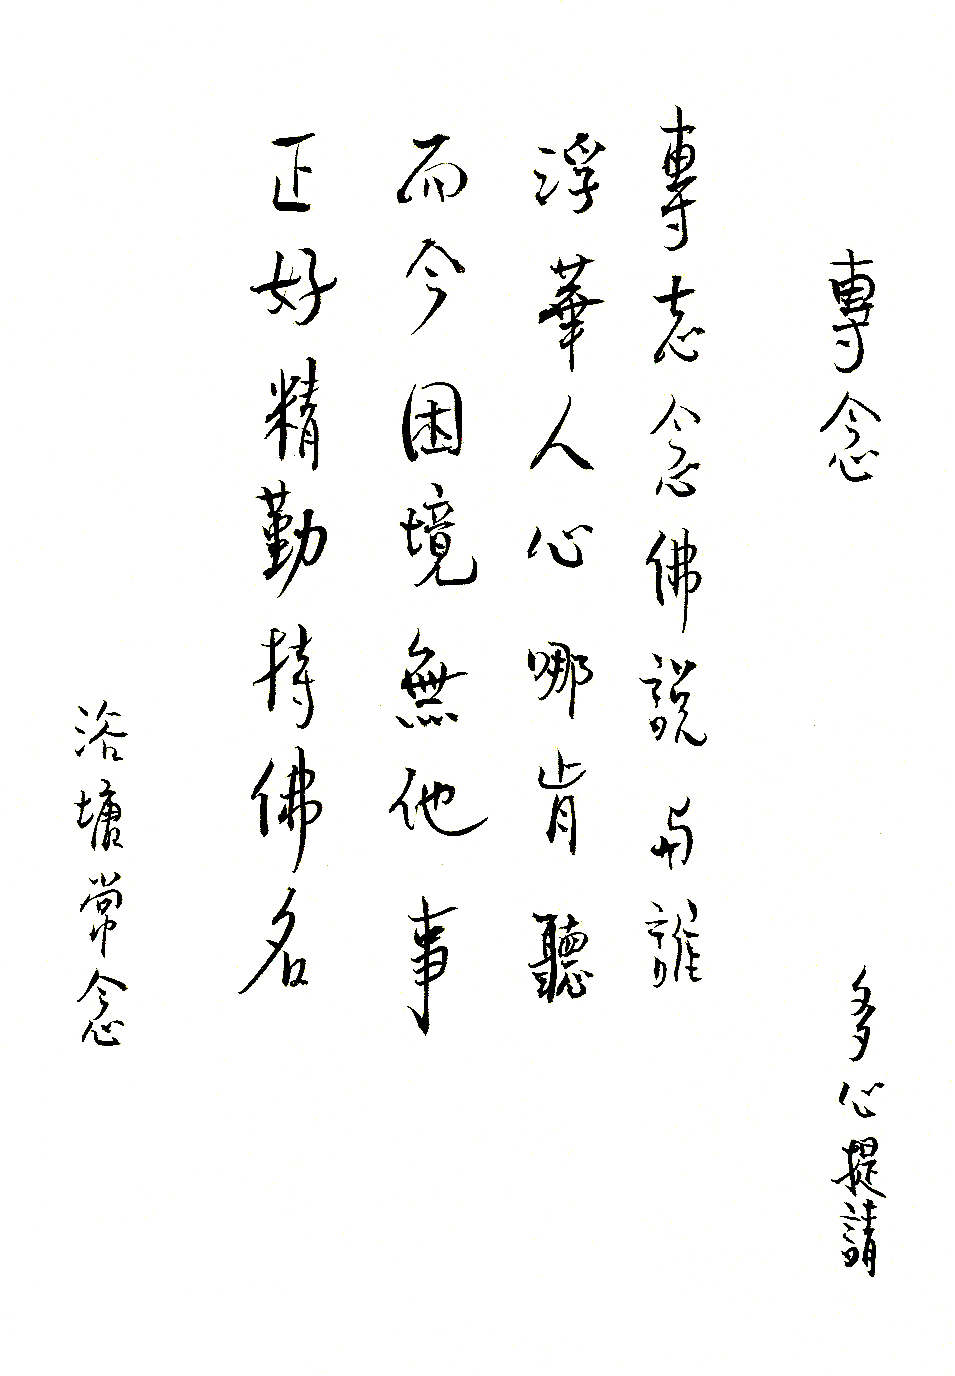 專念
多心提請
專志念佛説与誰
浮華人心哪肯聽
而今困境無他事
正好精勤持佛名
浴墉常念